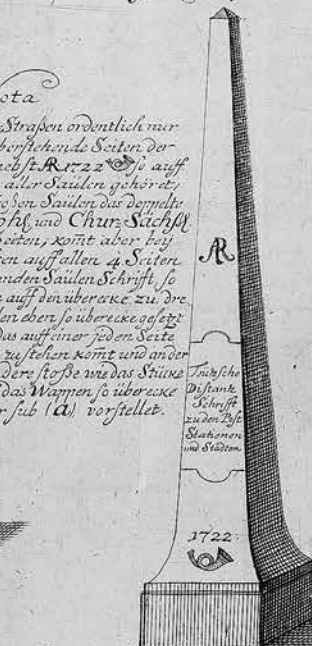 ota
Straßen ordentlich nur
berstehende Seiten der
nebst AR 1722 so auff
aller Säulen gehöret,
oßen Säulen das doppelte
ohl. und Chur-Sächßl
Seiten, komt aber bey
en auff allen 4. Seiten
enden Säulen Schrifft, so
auff den uberecke zu dre
len eben so uberecke gesetzt
das auff einer jeden Seite
zu stehen komt und an der
dere stoße wie das Stücke
das Wappen so uberecke
r sub (a) vorstellet.
AR
Distantz
Schrifft
zu den Post
Stationen
und Städten
1722